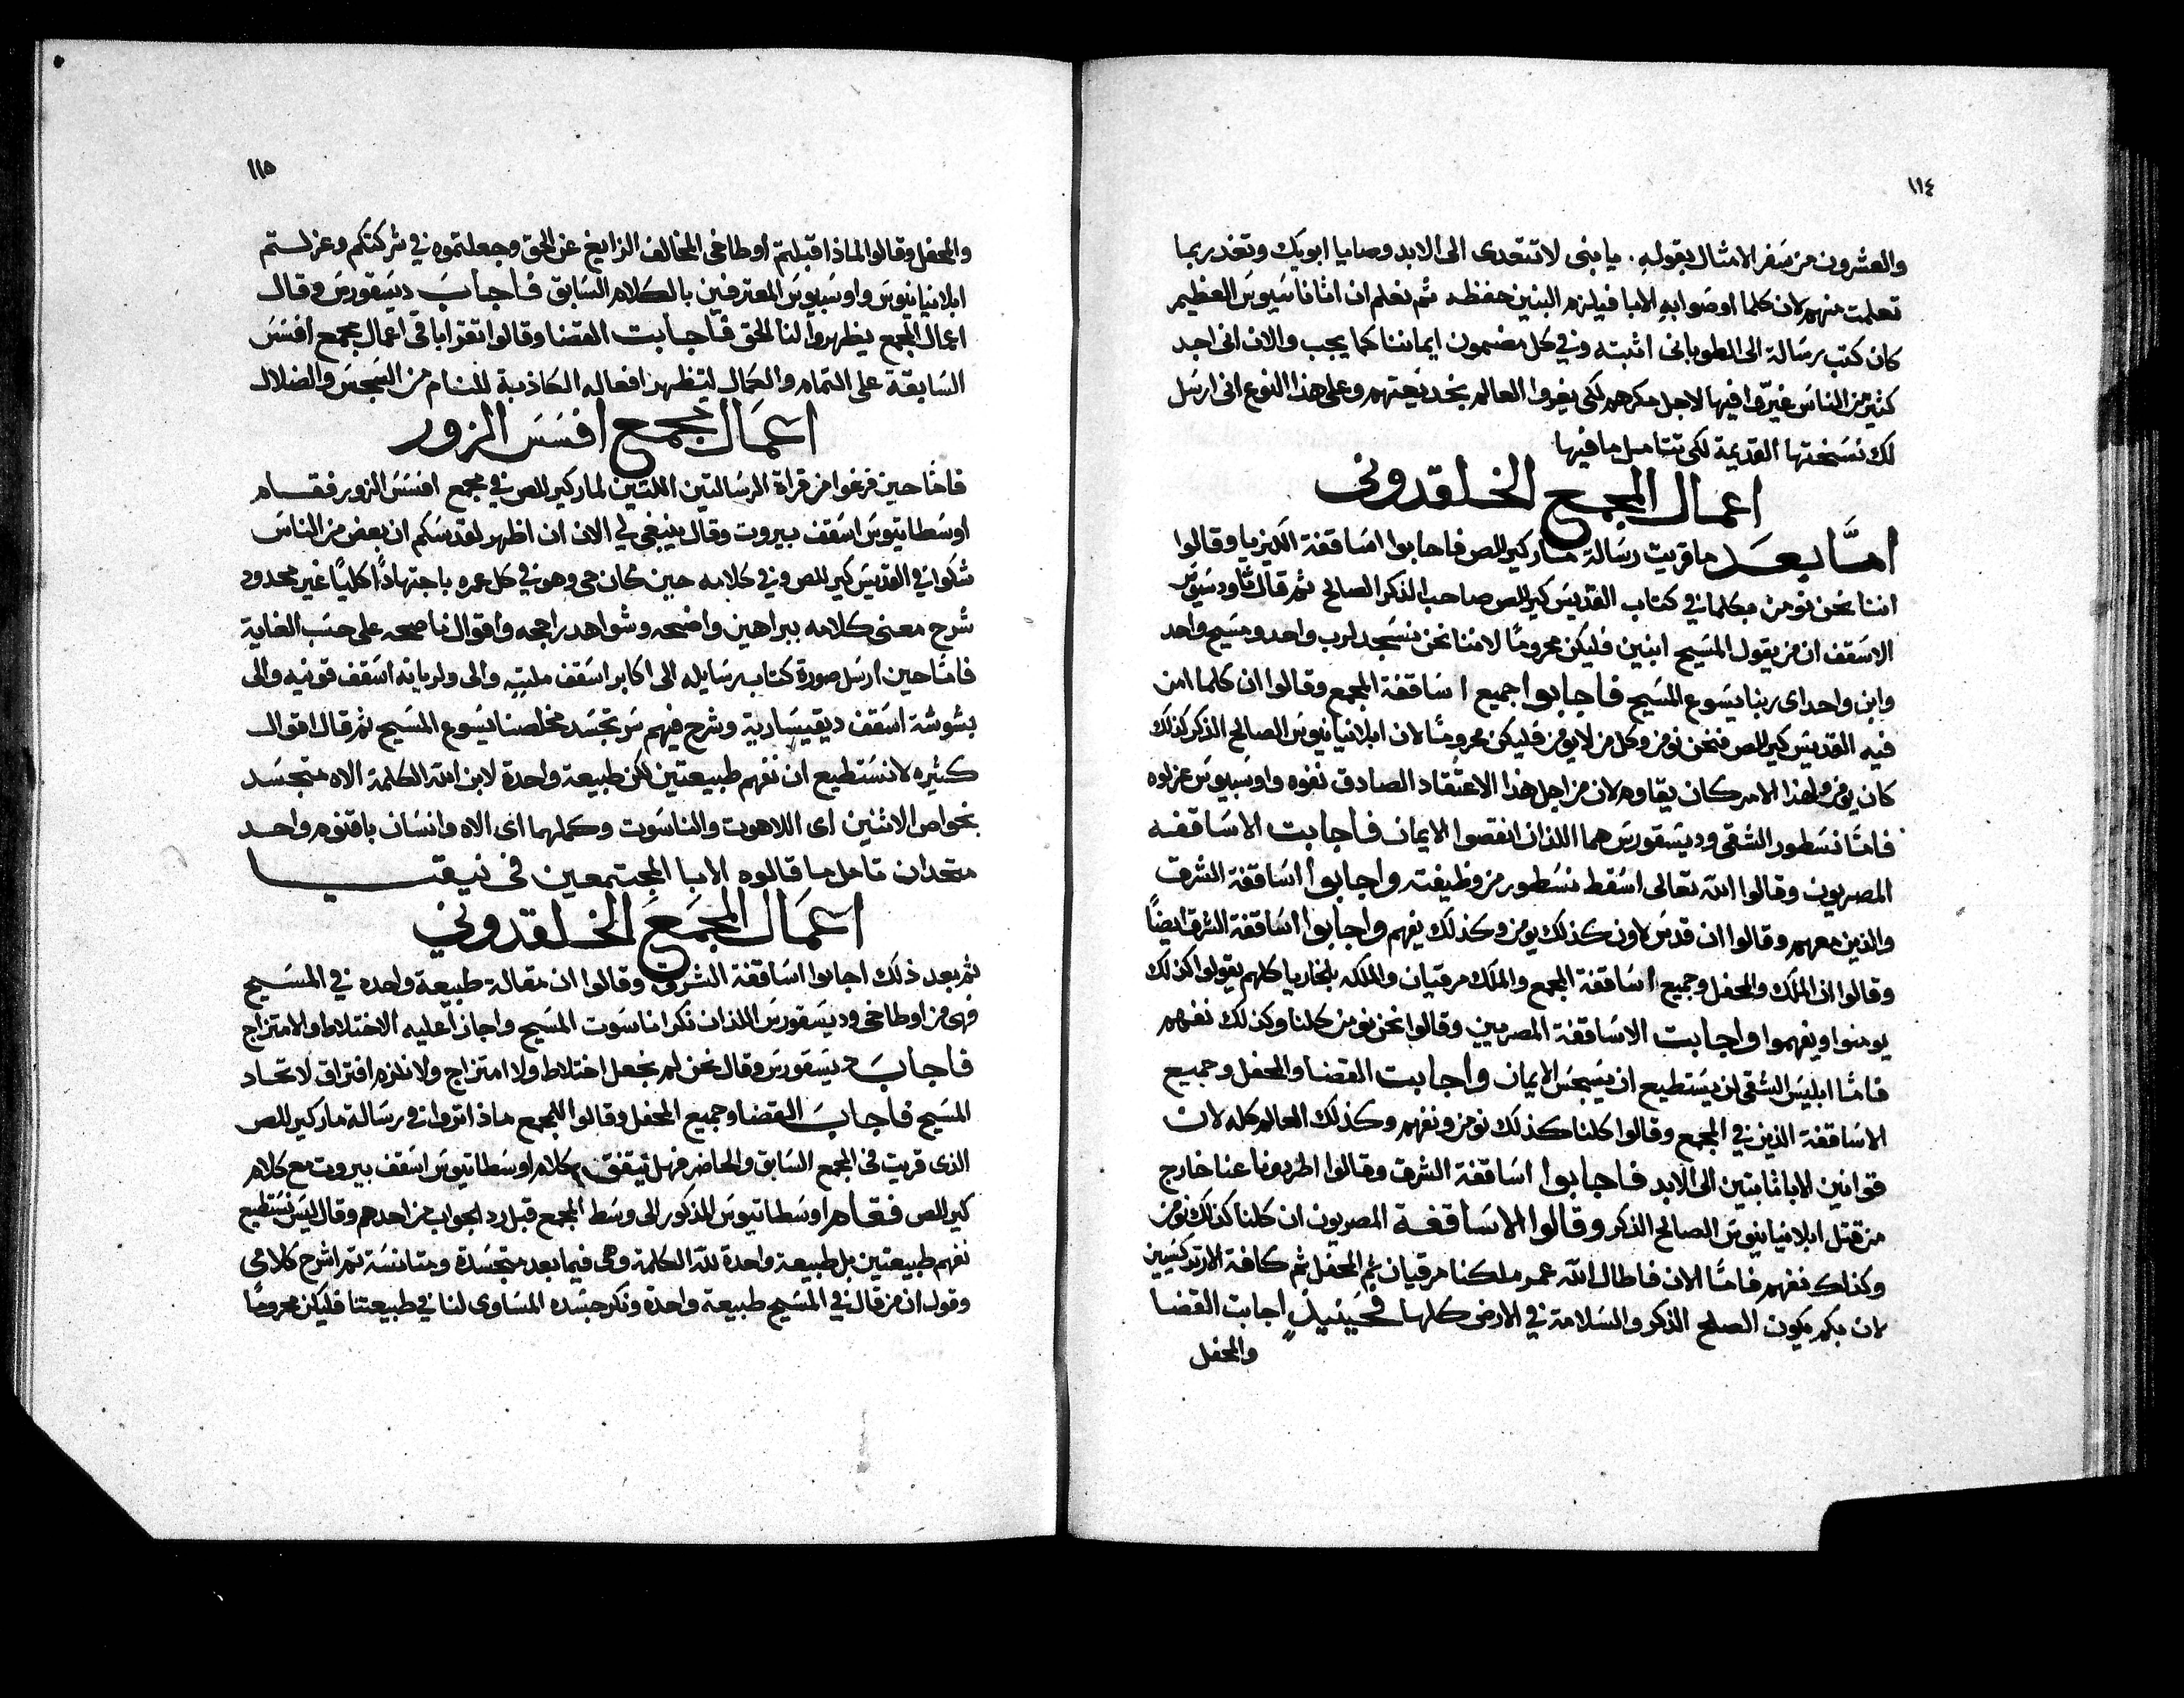 ١١٤
والعشرون من سفر الامثال بقوله. يا بنى لا تتعدى الى الابد وصايا ابويك وتغدر بما
تعلمت منهم لان كلما اوصوا به الابا فيلزم البنين حفظه ثم نعلم ان اثاناسيوس العظيم
كان كتب رسالة الى الطوبانى اثبته وفي كل مضمون ايماننا كما يجب والان انى اجد
كثير من الناس غيروا فيها لاجل مكرهم لكى يغروا العالم بخديعتهم وعلى هذا النوع انى ارسل
لك نسختها القديمة لكى تتامل ما فيها
اعمال المجمع الخلقدونى
امّا بعد ما قريت رسالة مار كيرللص فاجابوا اساقفة الكيزيا وقالوا
اننا نحن نومن بكلما في كتاب القديس كيرللص صاحب الذكر الصالح ثم قال ثاودسيوس
الاسقف ان من يقول المسيح ابنين فليكن محرومًا لاننا نحن نسجد لرب واحد ومسيح واحد
وابن واحد اى ربنا يسوع المسيح فاجابوا جميع اساقفة المجمع وقالوا ان كلما امن
فيه القديس كيرللص فنحن نومن وكل من لا يومن فليكن محرومًا لان ابلانيانيوس الصالح الذكر كذلك
كان يومن ولهذا الامر كان يقاوم لان من اجل هذا الاعتقاد الصادق نفوه واوسبيوس عزلوه
فامّا نسطور الشقى وديسقورس هما اللذان انقصوا الايمان فاجابت الاساقفه
المصريون وقالوا الله تعالى اسقط نسطور من وظيفته واجابوا اساقفة الشرق
والذين معهم وقالوا ان قدس لاون كذلك يومن وكذلك يفهم واجابوا اساقفة الشرق ايضًا
وقالوا ان الملك والمحفل وجميع اساقفة المجمع والملك مرقيان والملكه بلخاريا كلهم يقولوا كذلك
يومنوا ويفهموا واجابت الاساقفة المصرمين وقالوا نحن نومن كلنا وكذلك نفهم
فامّا ابليس الشقى لن يستطيع ان يسجس الايمان واجابت القضا والمحفل وجميع
الاساقفة الذين في المجمع وقالوا كلنا كذلك نومن ونفهم وكذلك العالم كله لان
قوانين الابا ثابتين الى الابد فاجابوا اساقفة الشرق وقالوا اطردونا عنا خارج
من قتل ابلانيانيوس الصالح الذكر وقالوا الاساقفة المصريون ان كلنا كذلك نومن
وكذلك نفهم فامّا الان فاطال الله عمر ملكنا مرقيان ثم المحفل ثم كافة الارتدكسيين
لان بكم يكون الصلح الذكر والسلامة في الارض كلها فحينيذٍ اجابت القضا
والمحفل
١١٥
والمحفل وقالوا لماذا قبلتم اوطاخى المخالف الزايغ عن الحق وجعلتموه في شركتكم وعزلتم
ابلانيانيوس واوسبيوس المعترفين بالكلام السابق فاجاب ديسقورس وقال
اعمال المجمع يظهروا لنا الحق فاجابت القضا وقالوا تقرا باقى اعمال مجمع افسس
السابقة على التمام والكمال ليتظهر افعاله الكاذبة للنام من السجس والضلال
اعمال مجمع افسس الزور
فامّا حين فرغوا من قراة الرسالتين اللتين لمار كيرللص في مجمع افسس الزور فقام
اوسطاتيوس اسقف بيروت وقال ينبغي لي الان ان اظهر لقدسكم ان بعض من الناس
شكوا في القديس كيرللص وفي كلامه حين كان حى وهو في كل عمره باجتهادًا كليًا غير محدود
شرح معنى كلامه ببراهين واضحه وشواهد راجحه واقوال ناصحه على حسب الغاية
فامّا حين ارسل صورة كتاب رسايله الى اكابر اسقف ملبته والى ولريانه اسقف قونيه والى
بشوشة اسقف ديقيسارية وشرح فيهم سر تجسد مخلصنا يسوع المسيح ثم قال اقوال
كثيره لا نستطيع ان نفهم طبيعتين لكن طبيعة واحدة لابن الله الكلمة الاه متجسد
بخواص الاثنين اى اللاهوت والناسوت وكملهما اى الاه وانسان باقنوم واحد
متحدان تامل ما قالوه الابا المجتمعين في نيقيا
اعمال المجمع الخلقدوني
ثم بعد ذلك اجابوا اساقفة الشرق وقالوا ان مقالة طبيعة واحده في المسيح
فهى من اوطاخى وديسقورس اللذان نكرا ناسوت المسيح واجازا عليه الاختلاط والامتزاج
فاجاب ديسقورس وقال نحن لم نجعل اختلاط ولا امتزاج ولا نلزم افتراق لاتحاد
المسيح فاجاب القضا وجميع المحفل وقالوا للمجمع ماذا تروا في رسالة مار كيرللص
الذى قريت فى المجمع السابق والحاضر فهل تيقنق كلام اوسطاتيوس اسقف بيروت مع كلام
كيرللص فقام اوسطاتيوس المذكور الى وسط المجمع قبل رد الجواب من احدهم وقال ليس نستطيع
نفهم طبيعتين بل طبيعة واحدة لله الكلمة وهى فيما بعد متجسدة ومتانسة ثم اشرح كلامى
وقول ان من قال في المسيح طبيعة واحدة ونكر جسده المساوى لنا في طبيعتنا فليكن محرومًا